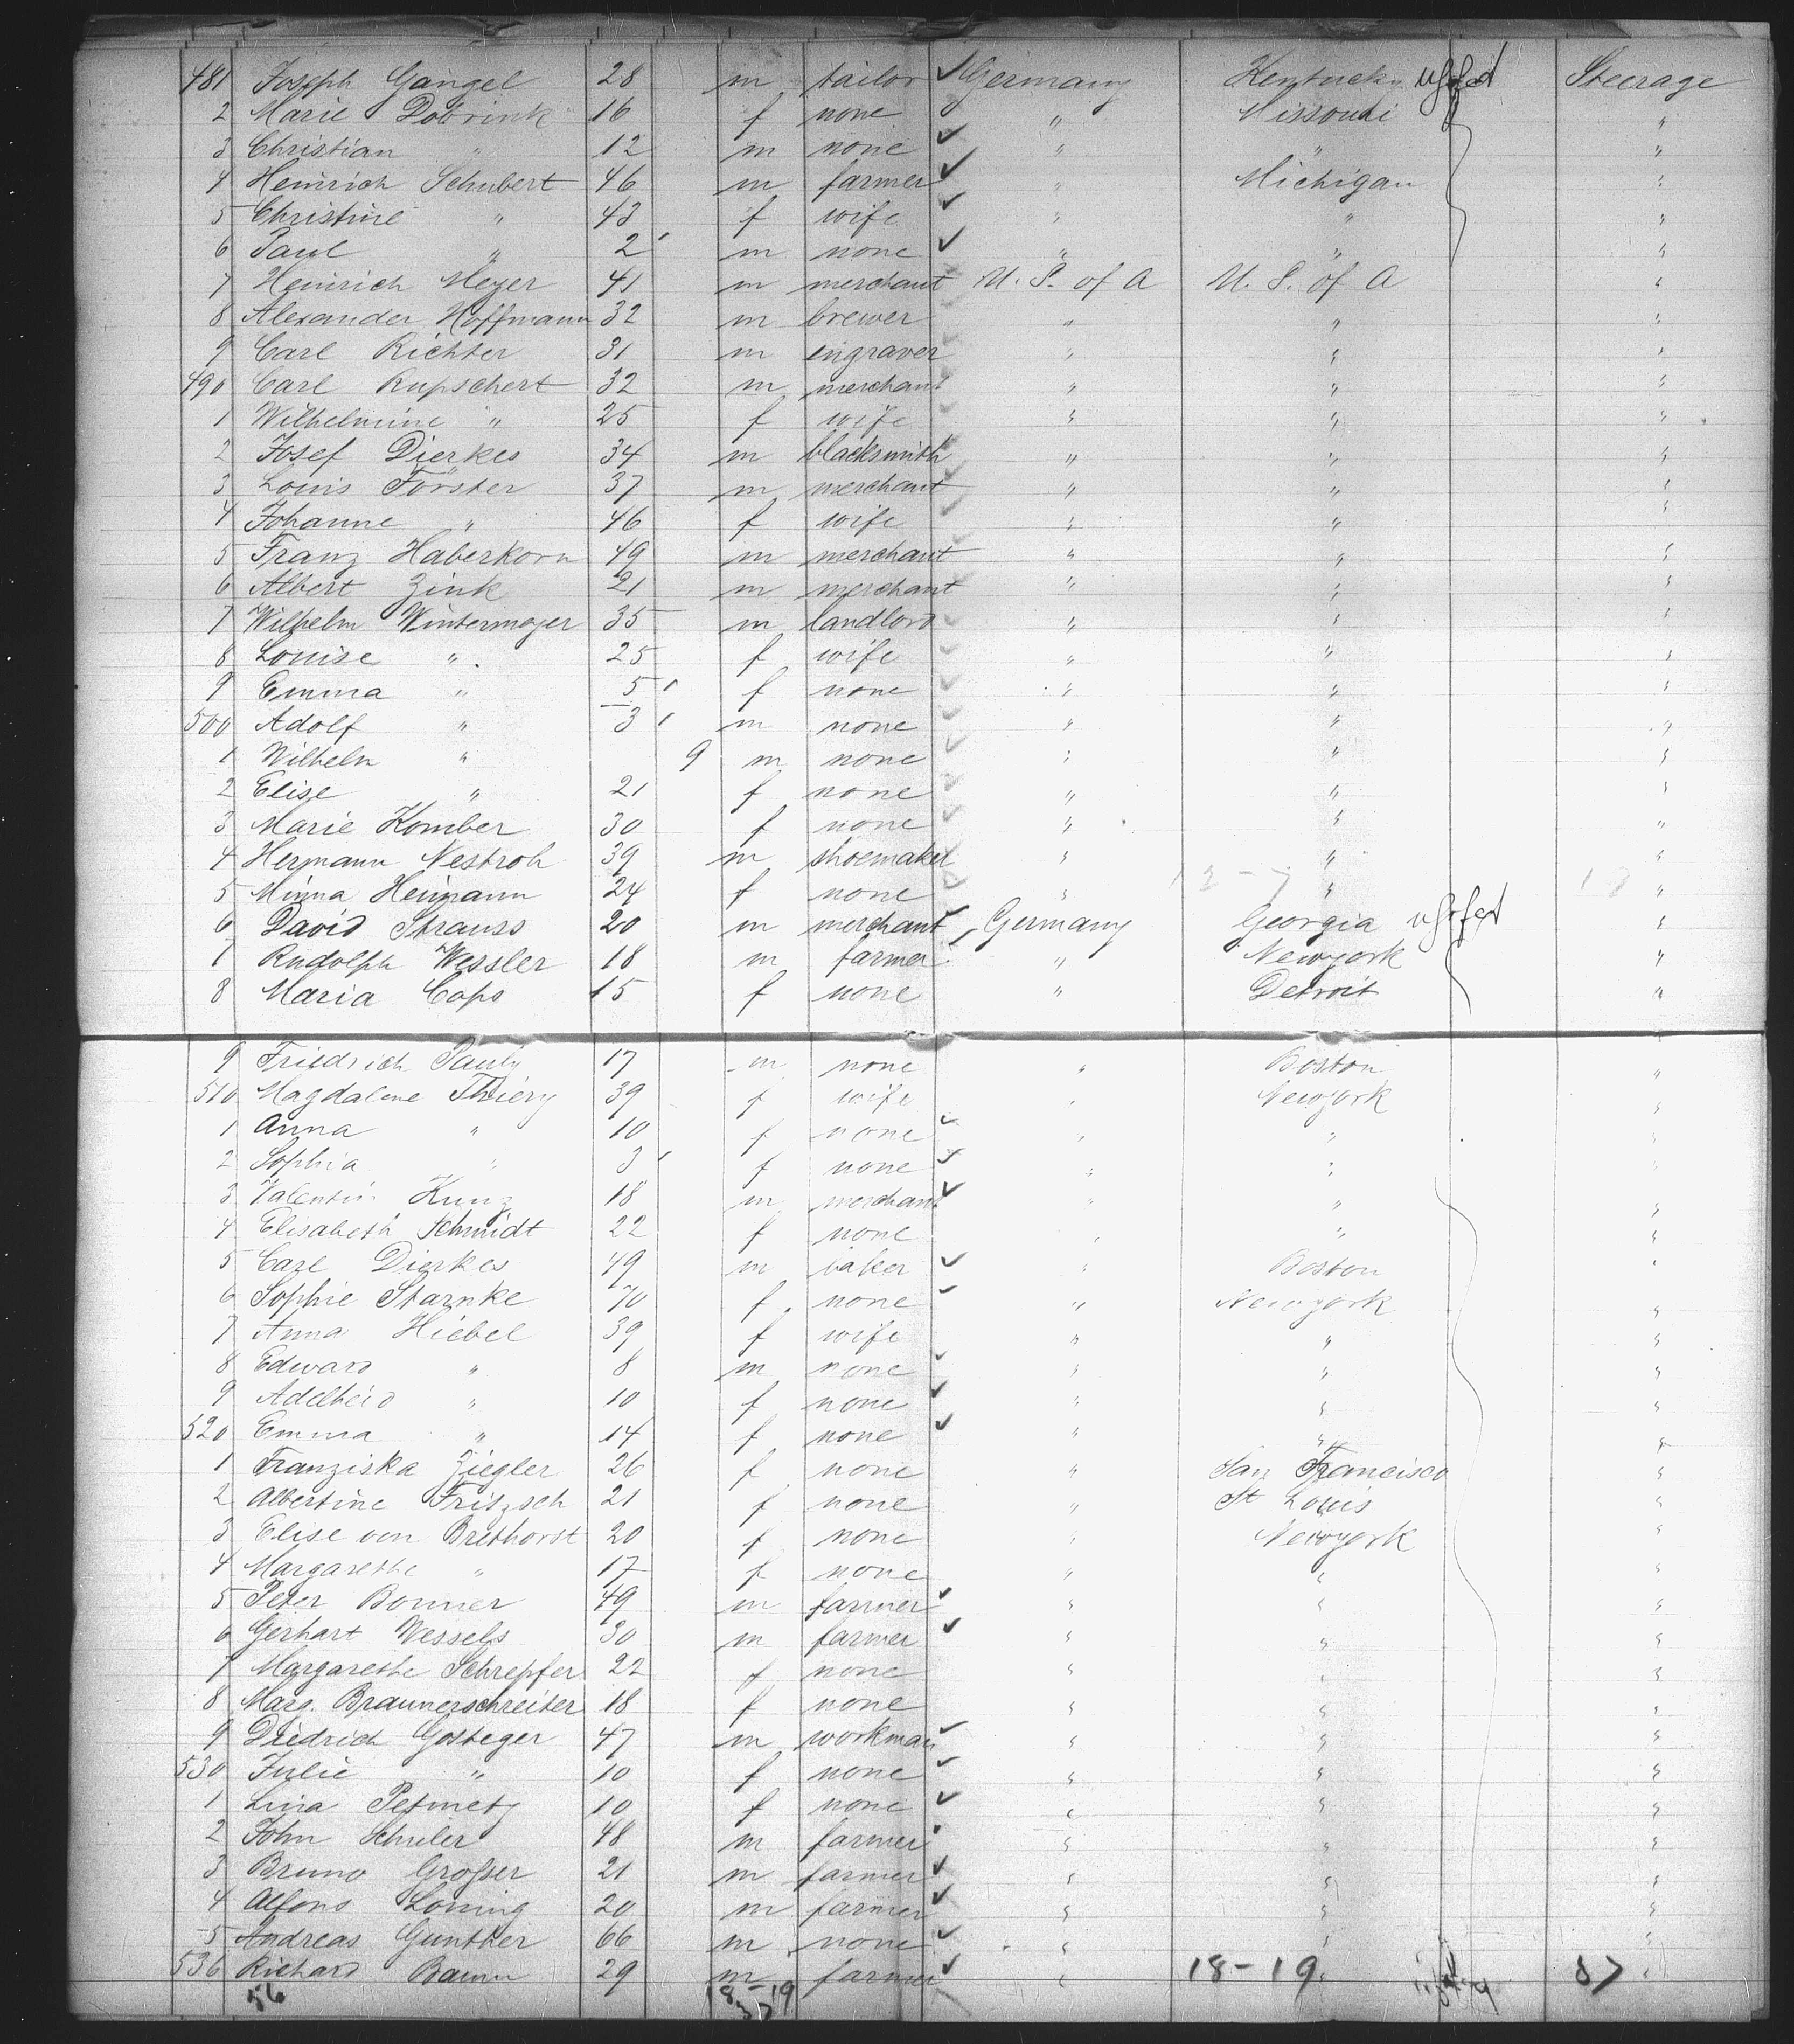 481 Joseph Gangel 28 m tailor ✓ Germany Kentucky Steerage
2 Marie Dobrink 16 f none " Missouri "
3 Christian " 12 m none ✓ " " "
4 Heinrich Schubert 46 m farmer ✓ " Michigan "
5 Christine " 43 f wife ✓ " " "
6 Paul " 2 m none ✓ " " "
7 Heinrich Meyer 41 m merchant U. S. of A U. S. of A "
8 Alexander Hoffmann 32 m brewer " " "
9 Carl Richter 31 m engraver " " "
490 Carl Rupschert 32 m merchant " " "
1 Wilhelmine " 25 f wife " " "
2 Josef Dierkes 34 m blacksmith " " "
3 Louis Förster 37 m merchant " " "
4 Johanne " 46 f wife " " "
5 Franz Haberkorn 49 m merchant " " "
6 Albert Zink 21 m merchant " " "
7 Wilhelm Wintermayer 35 m landlord " " "
8 Louise " 25 f wife " " "
9 Emma " 5 f none " " "
500 Adolf " 3 m none " " "
1 Wilhelm " 9 m none " " "
2 Elise " 21 f none " " "
3 Marie Komber 30 f none " " "
4 Hermann Nestroh 39 m shoemaker " " "
5 Minna Heimann 24 f none " " "
6 David Strauss 20 m merchant ✓ Germany Georgia "
7 Rudolph Wessler 18 m farmer " Newyork "
8 Maria Cops 15 f none " Detroit "
9 Friedrich Pauly 17 m none " Boston "
510 Magdalene Thiery 39 f wife " Newyork "
1 Anna " 10 f none ✓ " " "
2 Sophia " 3 f none ✓ " " "
3 Valentin Kunz 18 m merchant ✓ " " "
4 Elisabeth Schmidt 22 f none " " "
5 Carl Dierkes 49 m baker ✓ " Boston "
6 Sophie Starnke 70 f none ✓ " Newyork "
7 Anna Hiebel 39 f wife " " "
8 Edward " 8 m none ✓ " " "
9 Adelheid " 10 f none ✓ " " "
520 Emma " 14 f none ✓ " " "
1 Franziska Ziegler 26 f none " San Francisco "
2 Albertine Fritzsch 21 f none " St Louis "
3 Elise von Brethorst 20 f none " Newyork "
4 Margarethe " 17 f none " " "
5 Peter Bonner 49 m farmer ✓ " " "
6 Gerhart Wessels 30 m farmer ✓ " " "
7 Margarethe Schrepfer 22 f none " " "
8 Marg. Braunerschreiter 18 f none " " "
9 Diedrich Gosteger 47 m workman ✓ " " "
530 Julie " 10 f none ✓ " " "
1 Lina Petmetz 10 f none ✓ " " "
2 John Schuler 48 m farmer " " "
3 Bruno Großer 21 m farmer ✓ " " "
4 Alfons Loning 20 m farmer ✓ " " "
5 Andreas Gunther 66 m none ✓ " " "
536 Richard Baum 29 m farmer ✓ " 18-19 37
56 18-19
37